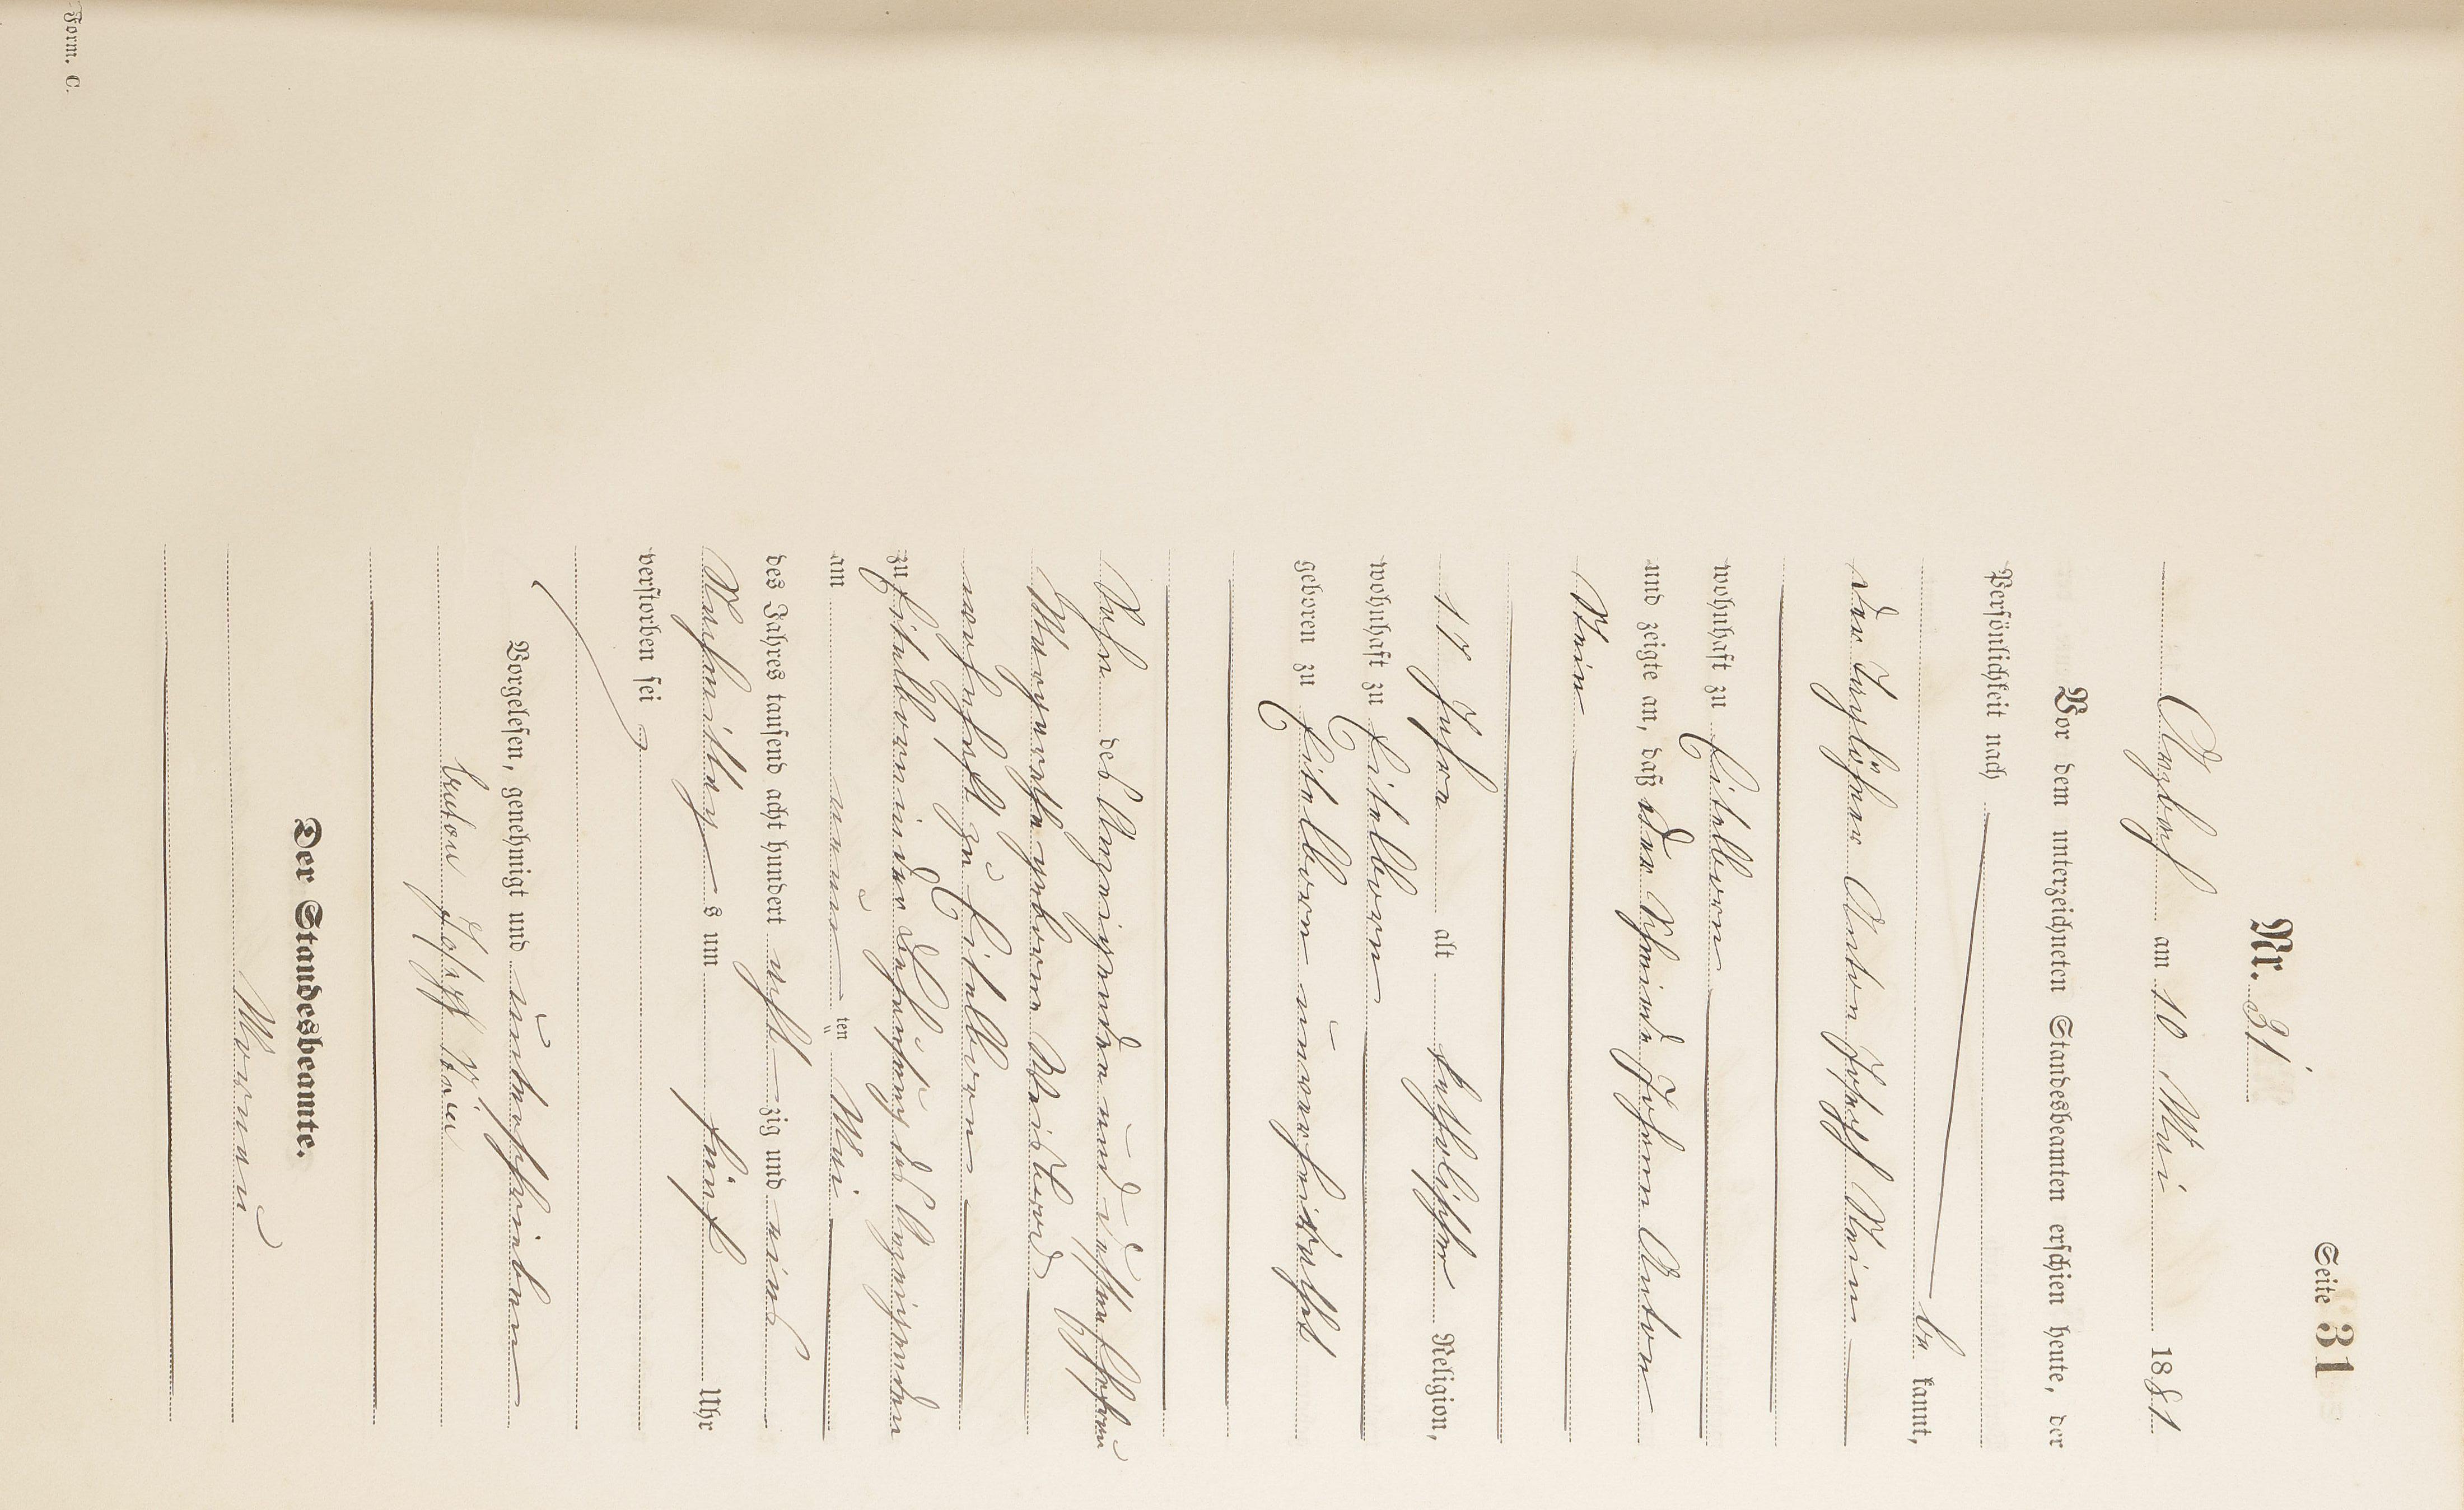 Seite 31
Nr. 31
Arzbach am 10 Mai 1881
Vor dem unterzeichneten Standesbeamten erschien heute, der
Persönlichkeit nach
be kannt,
der Taglöhner Anton Joseph Stein
wohnhaft zu Eitelborn
und zeigte an, daß der Johann Anton
Stein
Jahre alt katholischer Religion,
wohnhaft zu Eitelborn
geboren zu Eitelborn unverheirathet
Sohn des Anzeigenden und dessen Ehefrau
Margarethe geborene
wohnhaft zu Eitelborn
zu Eitelborn in der Behausung des Anzeigenden
am neun ten Mai
des Jahres tausend acht hundert acht zig und eins
Nachmittag s um fünf Uhr
verstorben sei
Vorgelesen, genehmigt und unterschrieben
Anton Joseph Stein
Der Standesbeamte.
Form. C.